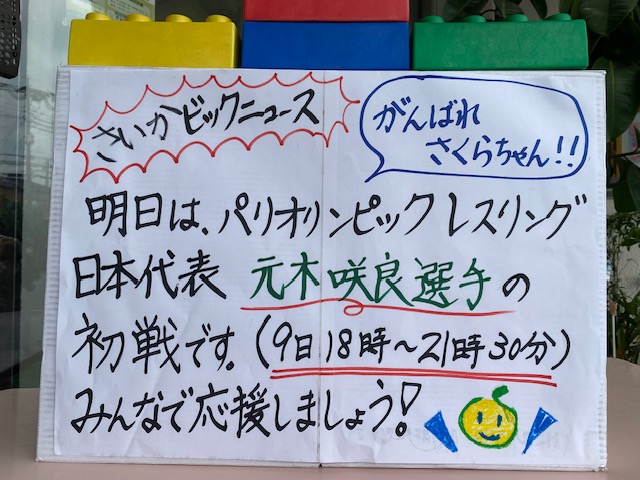 さいかビックニュース
がんばれ
さくらちゃん!!
明日は、パリオリンピックレスリング
日本代表 元木咲良選手の
初戦です。(9日18時〜21時30分)
みんなで応援しましょう!